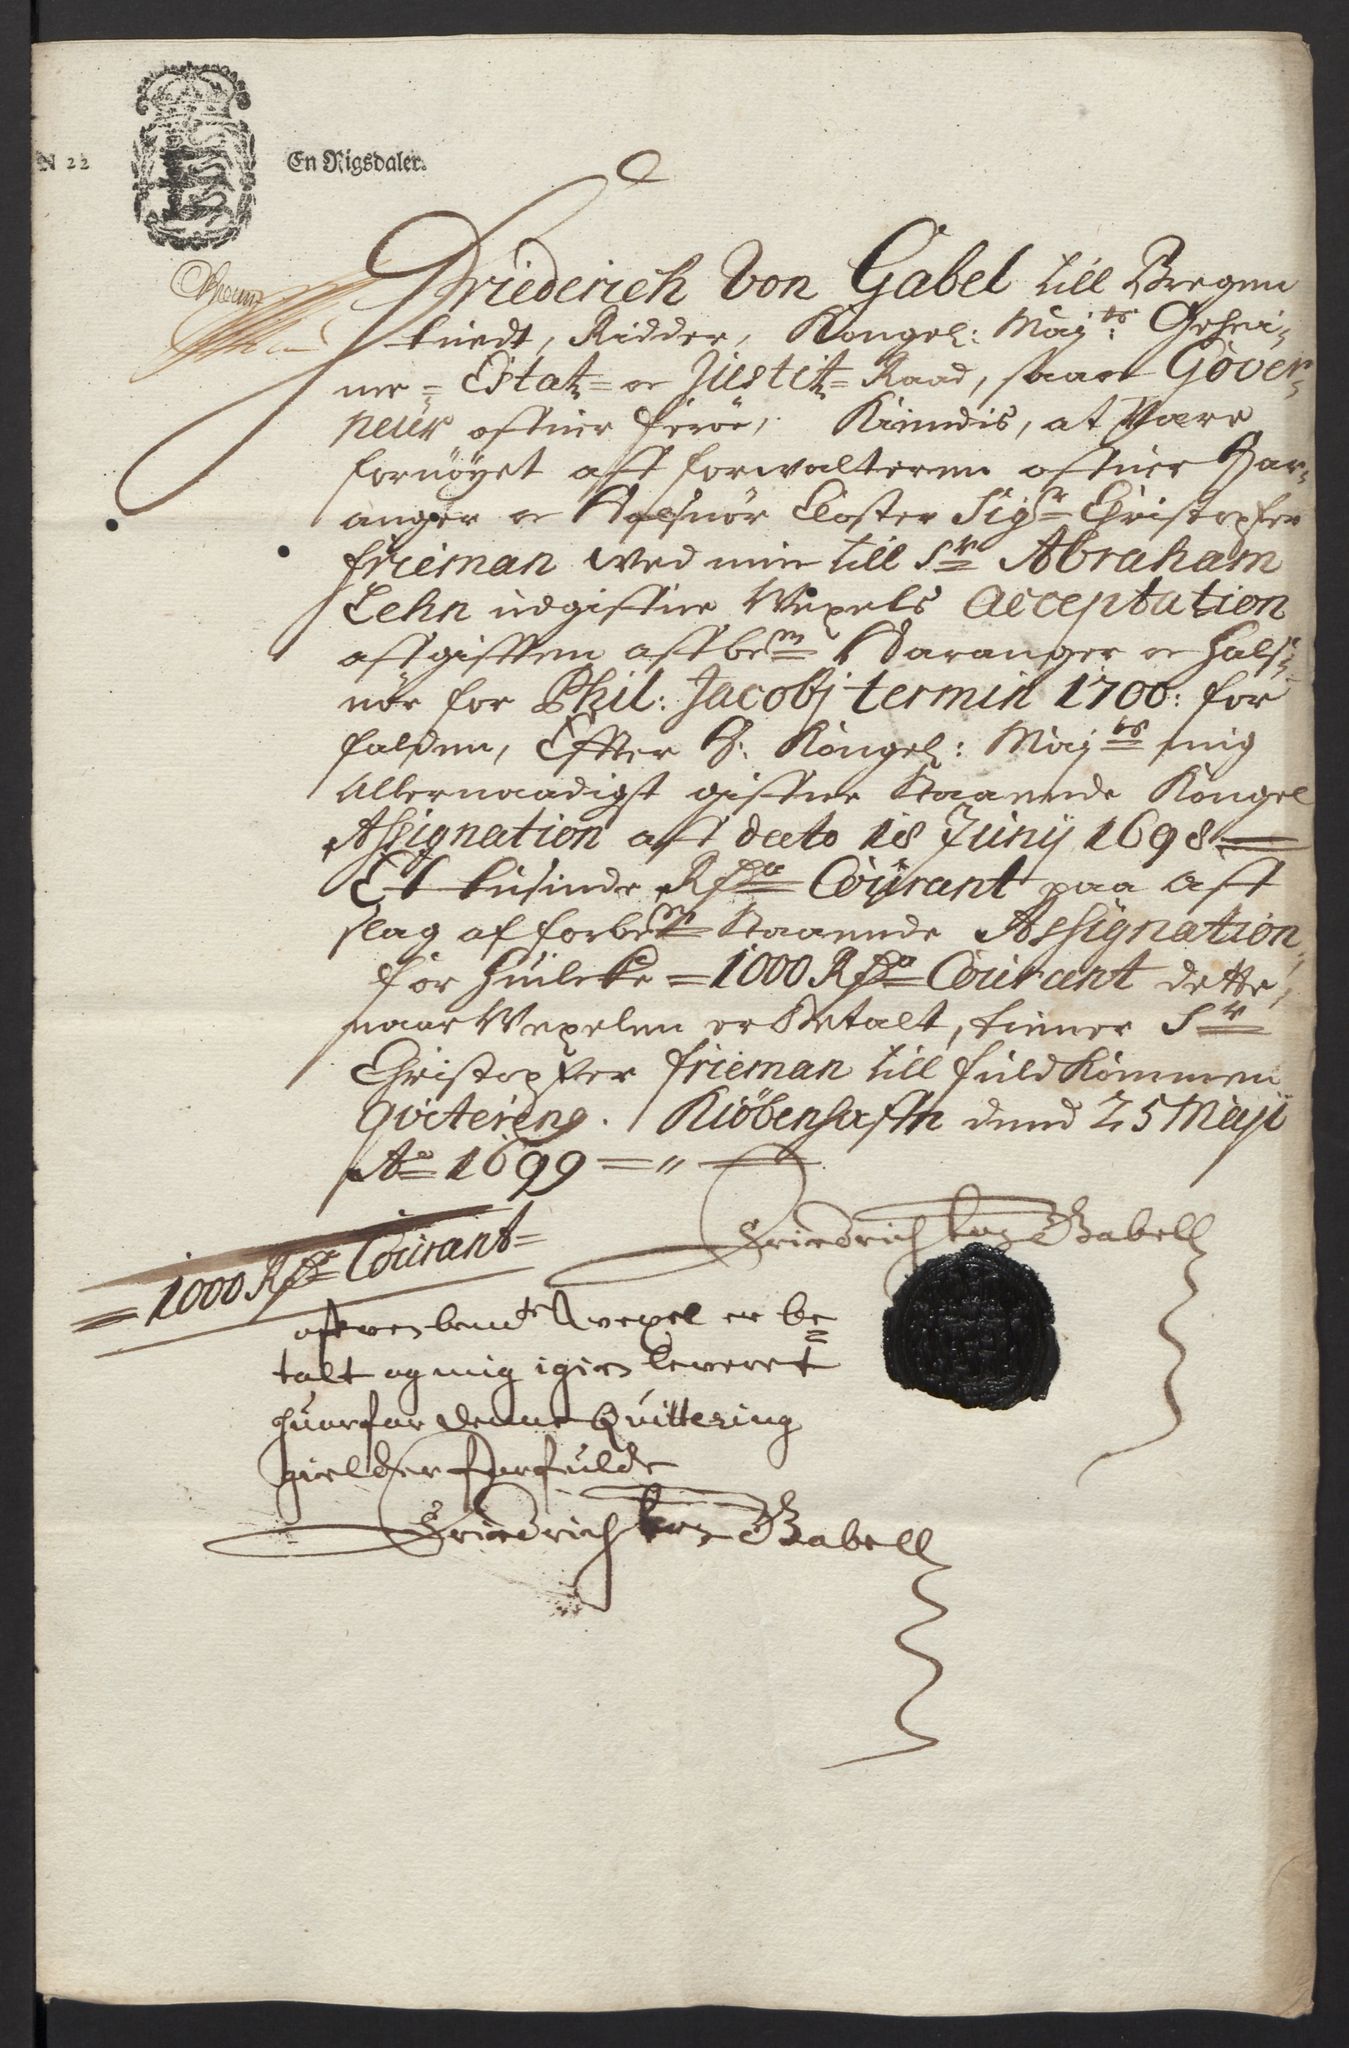 N 22
En Rigsdaler.
Friederich Von Gabel till Bregen
tuedt, Ridder, Kongel: Maj:ts Gehei-
me= Estatz= oc Justitz= Raad, samt Gover-
neur ofuer Feröe, Kiendis, at Være
fornöyet aff forwalteren ofuer Har-
anger oc Halsnör Closter Sigr Christopher
Frieman wed min till Sr Abraham
Lehn udgifne Wexels Acceptation
afgifften aff bem Haranger oc Hals-
nöe for Phil: Jacobj termin 1700: for
falden, Effter H: Kongel: Maj:ts mig
Allernaadigst gifne Staaende Kongel
Assignation aff dato 18 Junij 1698
Et tusinde Rdr Courant paa aff
slag af forbem Staaende Assignation,
for huilcke =1000 Rdr Courant dette,
naar Wexelen er betalt, tiener Sr
Christopher Frieman till fuldkommen
Qvitering. Kiöbenhaffn dend 25 Maji
Ao 1699
Friedrich von Gabell
=1000 Rdr Courant=
ofvenbemte wexel er be=
talt og mig igien leveret
huorfor denne Quittering
gielder for fulde
Friedrich von Gabell